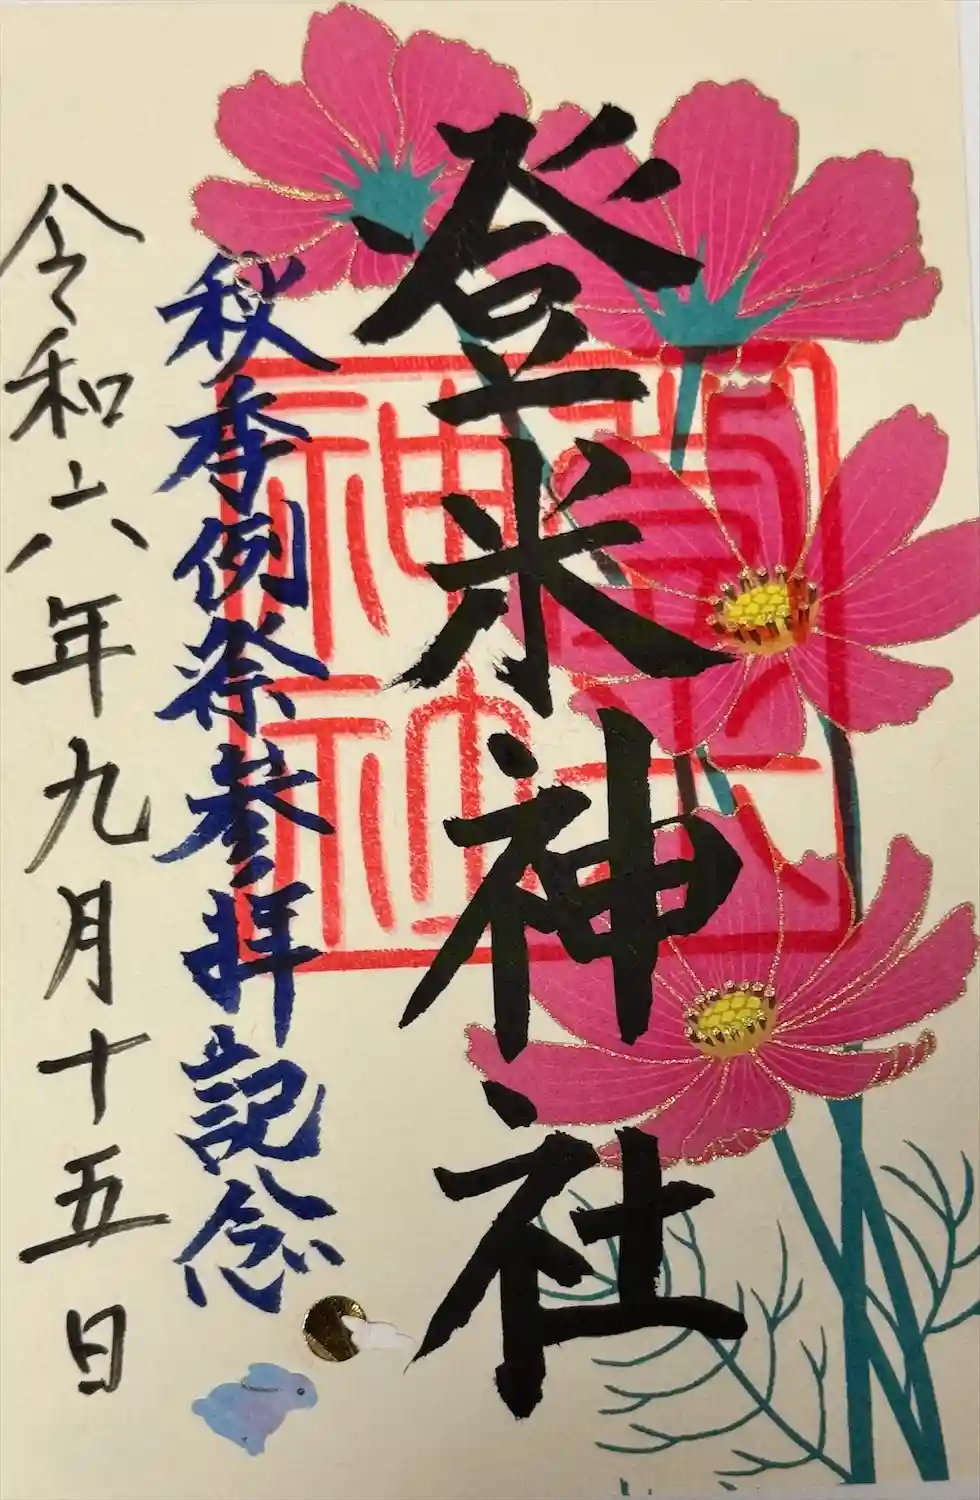 登米神社
秋季例祭参拝記念
令和六年九月十五日